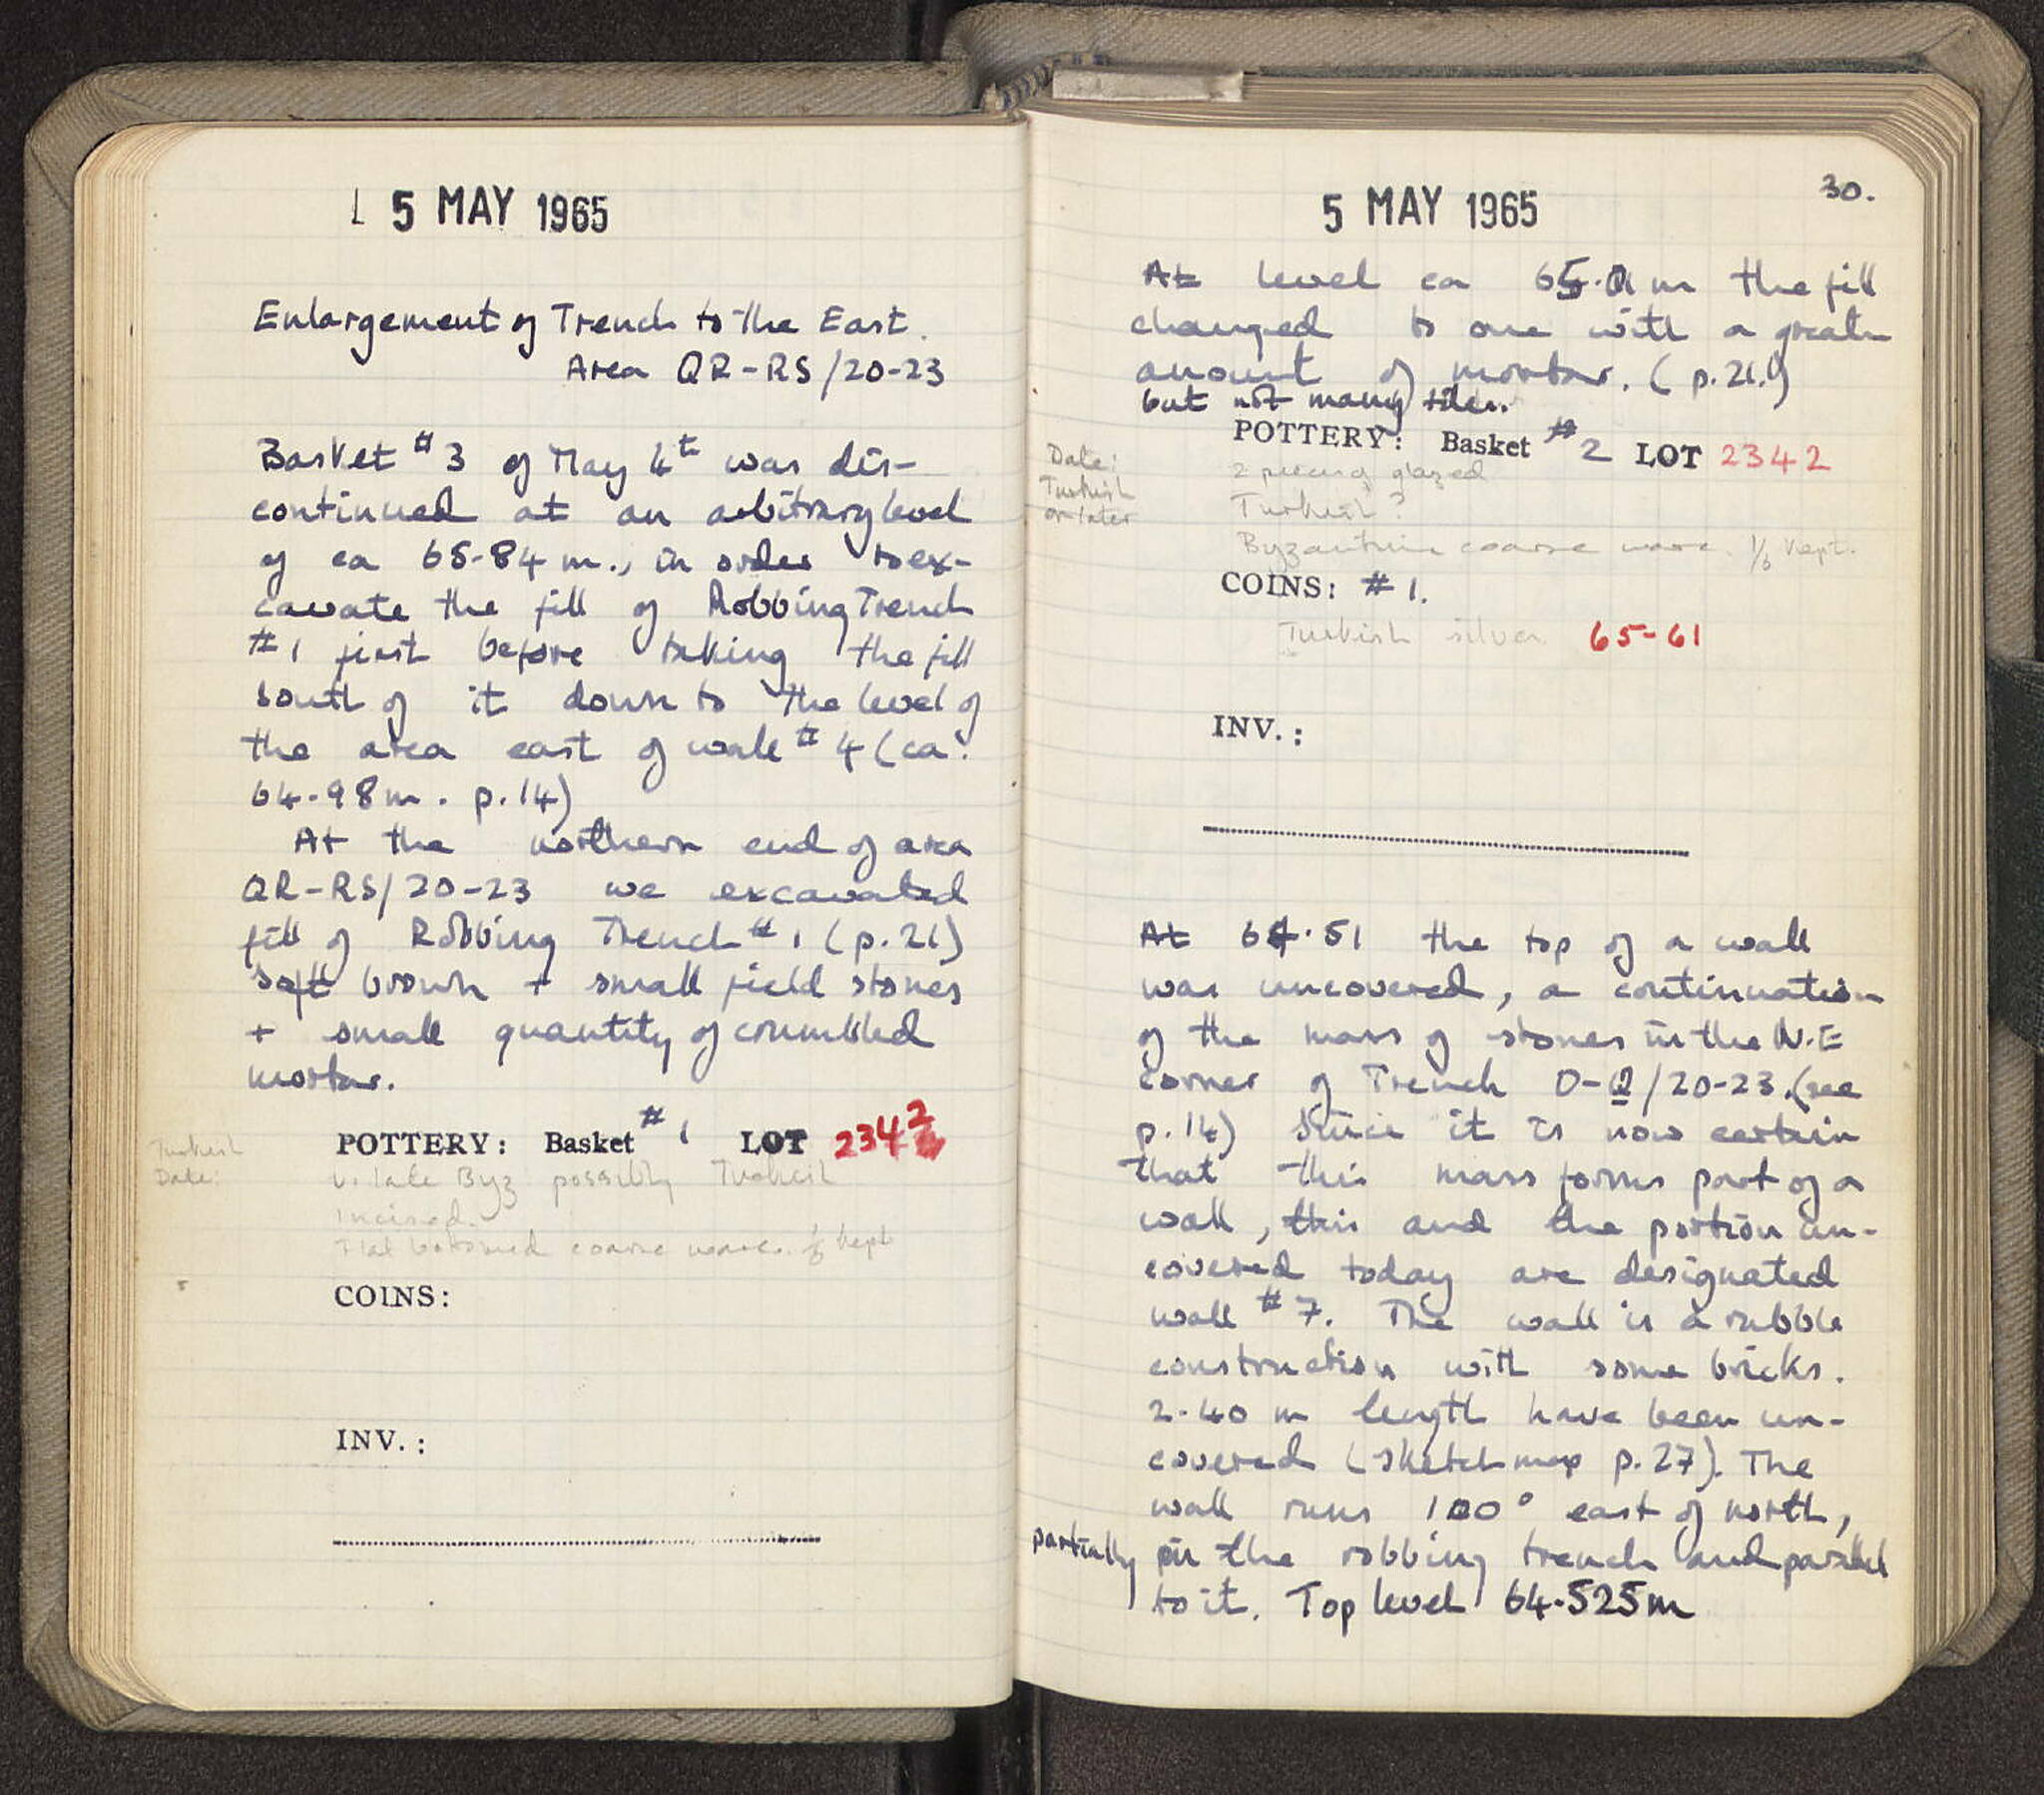 5 MAY 1965
Enlargement of Trench to the East.
Area QR-RS/20-23
Basket #3 of May 4t was dis-
continued at an arbitrary level
of ca 65.84 m., in order to ex-
cavate the fill of Robbing Trench
#1 first before taking the fill
south of it down to the level of
the area east of wall #4 (ca.
64.98 m. p.14)
At the northern end of area
QR-RS/20-23 we excavated
fill of Robbing Trench #1 (p.21)
soft brown + small field stones
+ small quantity of crumbled
mortar.
POTTERY: Basket #1 LOT 2342
Turkish
Date:
v. late Byz possibly Turkish
incised.
Flat bottomed coarse ware. kept
COINS:
INV.:
30.
5 MAY 1965
At level ca 65.01 m the fill
changed to one with a greater
amount of mortar. (p.21.)
but not many tiles.
POTTERY: Basket #2 LOT 2342
Date:
Turkish
or later
2 pieces glazed
Turkish?
Byzantine coarse ware. 1/3 kept.
COINS: #1.
Turkish silver 65-61
INV.:
At 64.51 the top of a wall
was uncovered, a continuation
of the mass of stones in the N.E
corner of Trench O-Q/20-23.(see
p.14) Since it is now certain
that this mass forms part of a
wall, this and the portion un-
covered today are designated
wall #7. The wall is a rubble
construction with some bricks.
2.40 m length have been un-
covered (sketch map p.27). The
wall runs 100° east of north,
partially in the robbing trench and parallel
to it. Top level 64.525m